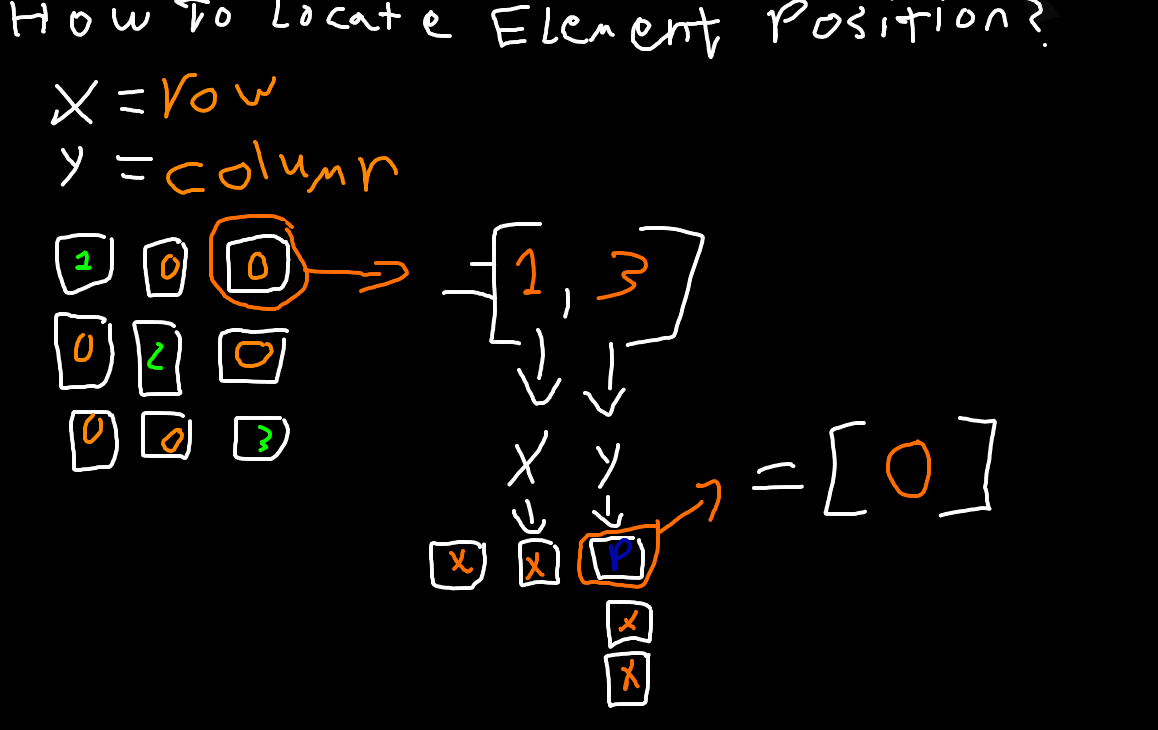 How To Locate Element Position?
X = row
Y = column
1 0 0
= [1, 3]
0 2 0
0 0 3
X Y
= [0]
X X P
X
X